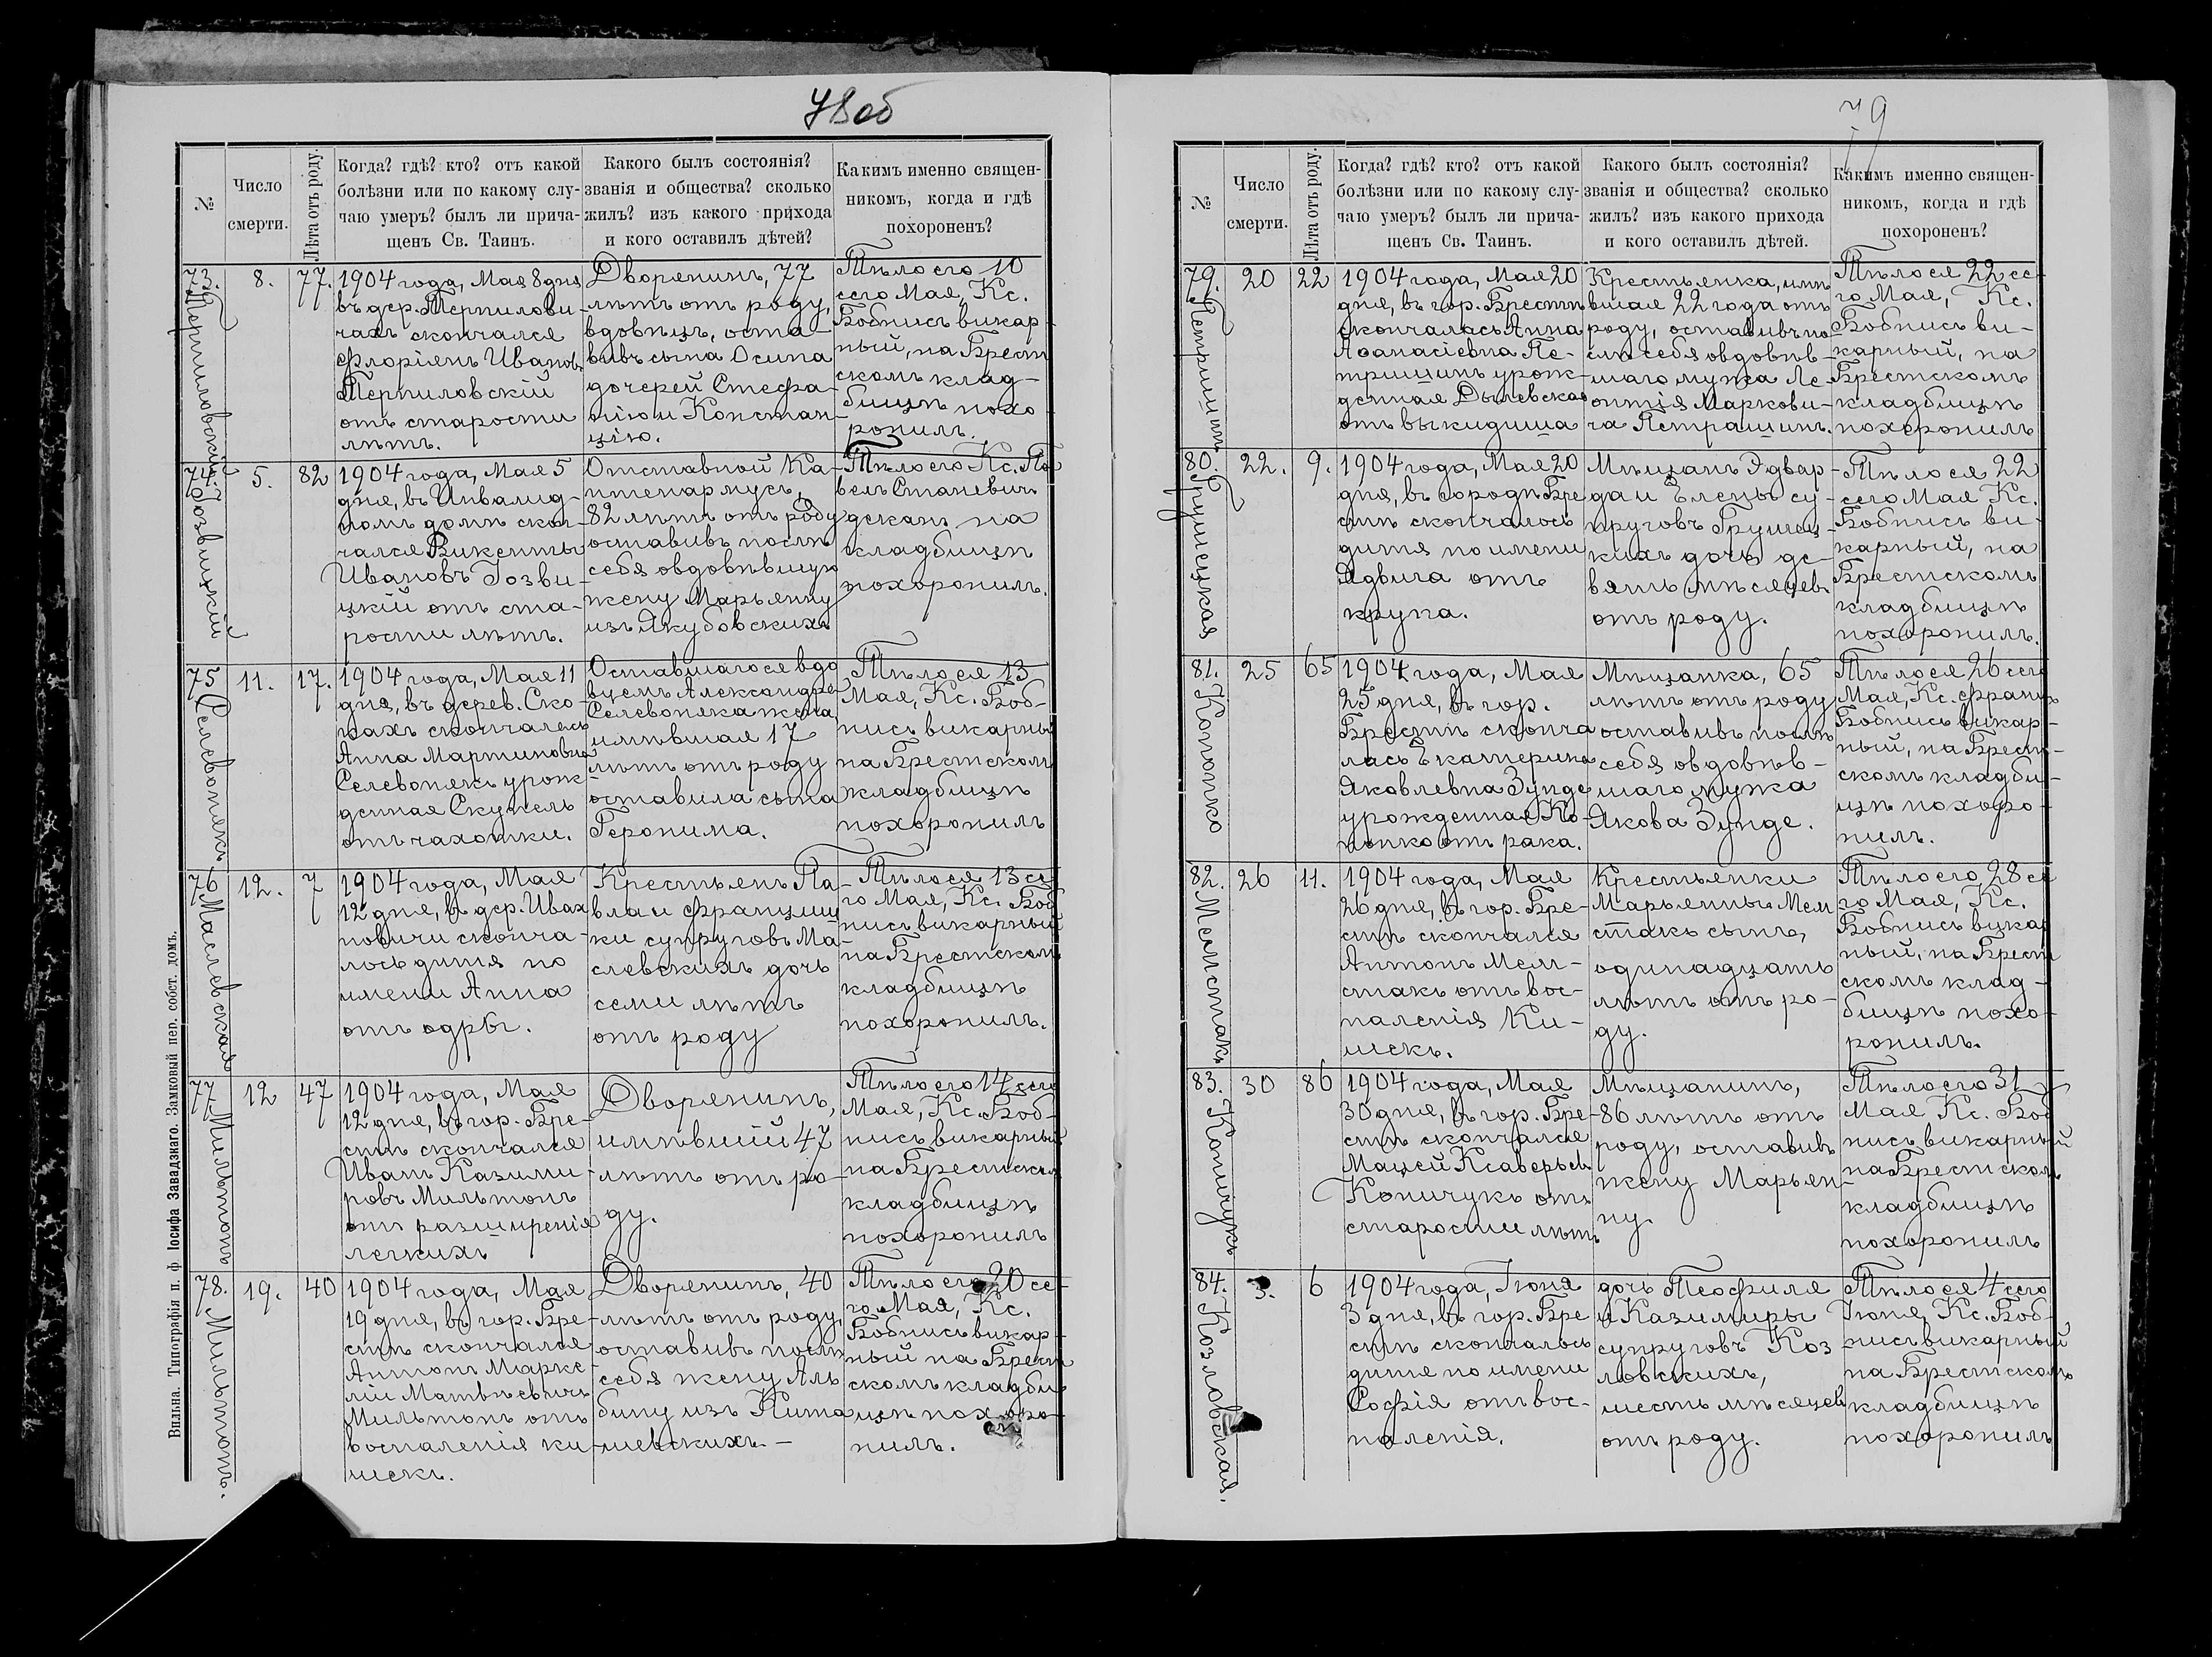 78 об
№
Число
смерти.
Лѣта отъ роду.
Когда? гдѣ? кто? отъ какой
болѣзни или по какому слу-
чаю умеръ? былъ ли прича-
щенъ Св. Таинъ.
Какого былъ состоянія?
званія и общества? сколько
жилъ? изъ какого прихода
и кого оставилъ дѣтей?
Какимъ именно священ-
никомъ, когда и гдѣ
похороненъ?
73.
8.
77.
1904 года, Мая 8 дня
въ дер. Терпилови-
чахъ скончался
Флоріянъ Ивановъ
Терпиловскій
отъ старости
лѣтъ.
Дворянинъ, 77
лѣтъ отъ роду,
вдовецъ, оста-
вивъ сына Осипа
дочерей Стефа-
нію и Констан-
цію.
Тѣло его 10
сего Мая, Кс.
Бобнисъ викар-
ный, на Брест
скомъ клад-
бищѣ похо
ронилъ.
Терпиловскій
74.
5.
82
1904 года, Мая 5
дня, въ Инвалид-
номъ домѣ скон-
чался Викентій
Ивановъ Іозви-
цкій отъ ста-
рости лѣтъ.
Отставной Ка-
птенармусъ,
82 лѣтъ отъ роду
оставивъ послѣ
себя овдовѣвшую
жену Марьянну
изъ Якубовскихъ
Тѣло его Кс. Па
велъ Станевичъ
деканъ на
кладбищѣ
похоронилъ.
Іозвицкій
75
11.
17.
1904 года, Мая 11
дня, въ дерев. Ско-
кахъ скончалась
Анна Мартиновна
Селевонякъ урож
денная Скупель
отъ чахотки.
Оставшагося вдо
вцемъ Александра
Селевоняка жена
имѣвшая 17
лѣтъ отъ роду
оставила сына
Геронима.
Тѣло ея 13
Мая, Кс. Боб-
нисъ викарный
на Брестскомъ
кладбищѣ
похоронилъ
Селевонякъ
76
12.
7
1904 года, Мая
12 дня, въ дер. Ивах
новичи сконча-
лось дитя по
имени Анна
отъ одры.
Крестьянъ Па-
вла и Францишки
супруговъ Ма-
слевскихъ дочь
семи лѣтъ
отъ роду
Тѣло ея 13 се
го Мая, Кс. Боб
нисъ викарный
на Брестскомъ
кладбищѣ
похоронилъ.
Маслевская
77
12
47
1904 года, Мая
12 дня, въ гор. Бре-
стѣ скончался
Иванъ Казими-
ровъ Мильтонъ
отъ разширенія
легкихъ
Дворянинъ,
имѣвшій 47
лѣтъ отъ ро-
ду.
Тѣло его 14 сего
Мая, Кс. Боб-
нисъ викарный
на Брестскомъ
кладбищѣ
похоронилъ
Мильтонъ
78.
19.
40
1904 года, Мая
19 дня, въ гор. Бре-
стѣ скончался
Антонъ Марке-
лій Матвѣевичъ
Мильтонъ отъ
воспаленія ки-
шекъ.
Дворянинъ, 40
лѣтъ отъ роду,
оставивъ послѣ
себя жену Аль
бину изъ Кита
шевскихъ. -
Тѣло его 20 се-
го Мая, Кс.
Бобнисъ викар-
ный на Брест
скомъ кладби
щѣ похоро-
нилъ.
Мильтонъ.
Вильна. Типографія п. ф Іосифа Завадзкаго. Замковый пер. собст. домъ.
79
№
Число
смерти.
Лѣта отъ роду.
Когда? гдѣ? кто? отъ какой
болѣзни или по какому слу-
чаю умеръ? былъ ли прича-
щенъ Св. Таинъ.
Какого былъ состоянія?
званія и общества? сколько
жилъ? изъ какого прихода
и кого оставилъ дѣтей.
Какимъ именно священ-
никомъ, когда и гдѣ
похороненъ?
79.
20
22
1904 года, Мая 20
дня, въ гор. Брестѣ
скончалась Анна
Аѳанасіевна Пе-
тришинъ урож-
денная Дылевская
отъ выкидиша
Крестьянка, имѣ
вшая 22 года отъ
роду, оставивъ по-
слѣ себя овдовѣв-
шаго мужа Ле-
онтія Маркови-
ча Петрашинъ.
Тѣло ея 22 се-
го Мая, Кс.
Бобнисъ ви-
карный, на
Брестскомъ
кладбищѣ
похоронилъ
Петришинъ
80.
22.
9.
1904 года, Мая 20
дня, въ городѣ Бре
стѣ скончалось
дитя по имени
Ядвига отъ
крупа.
Мѣщанъ Эдвар-
да и Елены су-
пруговъ Грушец-
кихъ дочь де-
вять мѣсяцевъ
отъ роду.
Тѣло ея 22
сего Мая Кс.
Бобнисъ ви-
карный, на
Брестскомъ
кладбищѣ
похоронилъ.
Грушецкая
81.
25
65
1904 года, Мая
25 дня, въ гор.
Брестѣ сконча
лась Екатерина
Яковлевна Зунде
урожденная Ко-
нопко отъ рака.
Мѣщанка, 65
лѣтъ отъ роду
оставивъ послѣ
себя овдовѣв-
шаго мужа
Якова Зунде.
Тѣло ея 26 сего
Мая, Кс. Францъ
Бобнисъ викар-
ный, на Брест-
скомъ кладби-
щѣ похоро-
нилъ.
82.
26
11.
1904 года, Мая
26 дня, въ гор. Бре-
стѣ скончался
Антонъ Мель-
стакъ отъ вос-
паленія Ки-
шекъ.
Крестьянки
Марьянны Мел
стакъ сынъ,
одинадцать
лѣтъ отъ ро-
ду.
Тѣло его 28 се
го Мая, Кс.
Бобнисъ викар
ный, на Брест
скомъ клад-
бищѣ похо-
ронилъ.
83.
30
86
1904 года, Мая
30 дня, въ гор. Бре-
стѣ скончался
Мацей Ксаверьевъ
Копичукъ отъ
старости лѣтъ
Мѣщанинъ,
86 лѣтъ отъ
роду, оставивъ
жену Марьян-
ну.
Тѣло его 31
Мая Кс. Боб
нисъ викарный
на Брестскомъ
кладбищѣ
похоронилъ
Копичукъ
84.
3.
6
1904 года, Іюня
3 дня, въ гор. Бре
стѣ скончалось
дитя по имени
Софія отъ вос-
паленія.
дочь Теофиля
и Казимиры
супруговъ Коз
ловскихъ,
шесть мѣсяцевъ
отъ роду.
Тѣло ея 4 сего
Іюня, Кс. Боб-
нисъ викарный
на Брестскомъ
кладбищѣ
похоронилъ
Козловская.